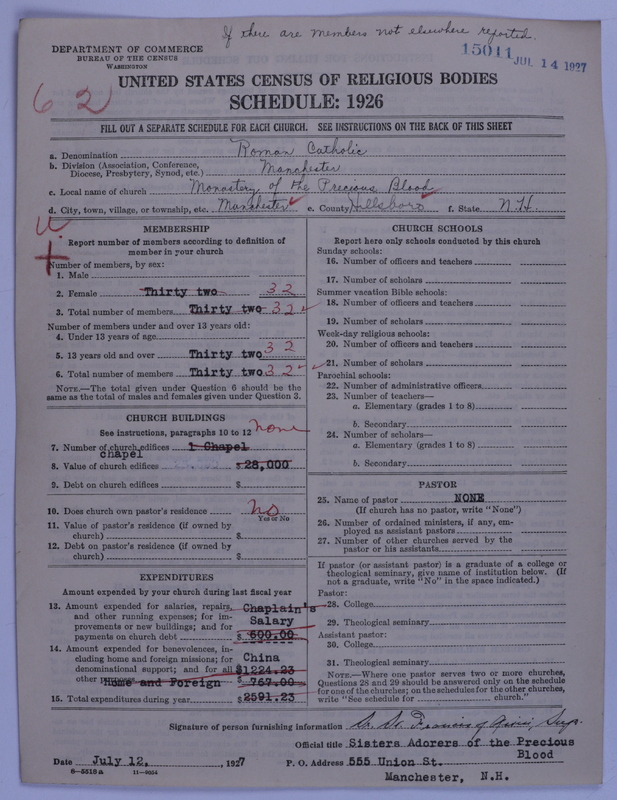 If there are members not elsewhere reported.
DEPARTMENT OF COMMERCE
BUREAU OF THE CENSUS
WASHINGTON
15011 JUL 14 1927
62
UNITED STATES CENSUS OF RELIGIOUS BODIES
SCHEDULE: 1926
FILL OUT A SEPARATE SCHEDULE FOR EACH CHURCH. SEE INSTRUCTIONS ON THE BACK OF THIS SHEET
a. Denomination Roman Catholic
b. Division (Association, Conference, Diocese, Presbytery, Synod, etc.) Manchester
c. Local name of church Monastery of the Precious Blood
d. City, town, village, or township, etc. Manchester e. County Hillsboro f. State N.H.
MEMBERSHIP
Report number of members according to definition of
member in your church
Number of members, by sex:
1. Male
2. Female Thirty two 32
3. Total number of members Thirty two 32
Number of members under and over 13 years old:
4. Under 13 years of age
5. 13 years old and over Thirty two 32
6. Total number of members Thirty two 32
NOTE.—The total given under Question 6 should be the
same as the total of males and females given under Question 3.
CHURCH BUILDINGS
See instructions, paragraphs 10 to 12 none
7. Number of church edifices 1 Chapel
chapel
8. Value of church edifices $28,000
9. Debt on church edifices $
10. Does church own pastor's residence no
Yes or No
11. Value of pastor's residence (if owned by
church) $
12. Debt on pastor's residence (if owned by
church) $
EXPENDITURES
Amount expended by your church during last fiscal year
13. Amount expended for salaries, repairs, Chaplain's
and other running expenses; for im-
provements or new buildings; and for Salary
payments on church debt $ 600.00
14. Amount expended for benevolences, in-
cluding home and foreign missions; for China
denominational support; and for all $1224.23
other purposes Home and Foreign $ 767.00
15. Total expenditures during year $2591.23
CHURCH SCHOOLS
Report here only schools conducted by this church
Sunday schools:
16. Number of officers and teachers
17. Number of scholars
Summer vacation Bible schools:
18. Number of officers and teachers
19. Number of scholars
Week-day religious schools:
20. Number of officers and teachers
21. Number of scholars
Parochial schools:
22. Number of administrative officers
23. Number of teachers—
a. Elementary (grades 1 to 8)
b. Secondary
24. Number of scholars—
a. Elementary (grades 1 to 8)
b. Secondary
PASTOR
25. Name of pastor NONE
(If church has no pastor, write "None")
26. Number of ordained ministers, if any, em-
ployed as assistant pastors
27. Number of other churches served by the
pastor or his assistants
If pastor (or assistant pastor) is a graduate of a college or
theological seminary, give name of institution below. (If
not a graduate, write "No" in the space indicated.)
Pastor:
28. College
29. Theological seminary
Assistant pastor:
30. College
31. Theological seminary
NOTE.—Where one pastor serves two or more churches,
Questions 28 and 29 should be answered only on the schedule
for one of the churches; on the schedules for the other churches,
write "See schedule for church."
Signature of person furnishing information Sr. St. Francis of Assisi, Sup.
Official title Sisters Adorers of the Precious
Blood
Date July 12, 1927 P. O. Address 555 Union St.
6-5518a 11-9054 Manchester, N.H.